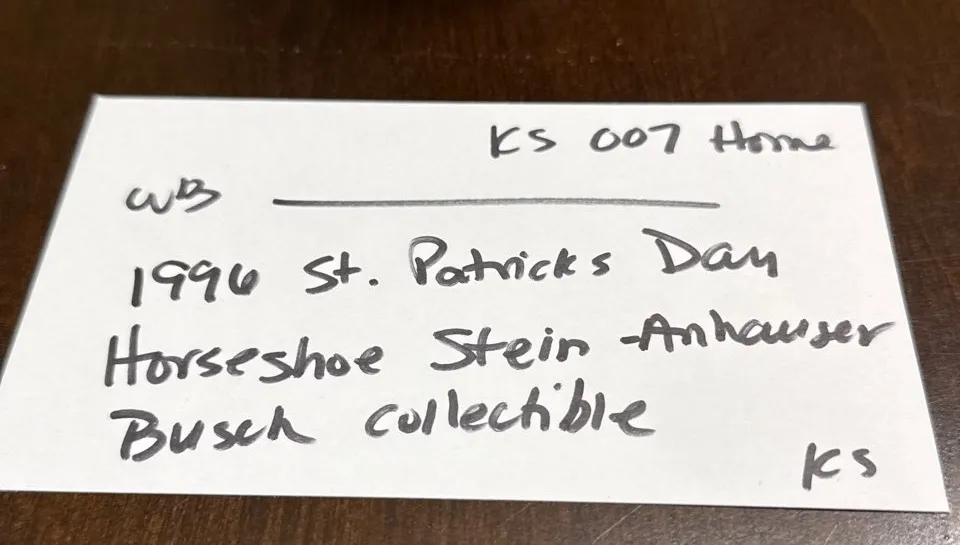 KS 007 Home
WB
1996 St. Patricks Day
Horseshoe Stein - Anhauser
Busch collectible
KS